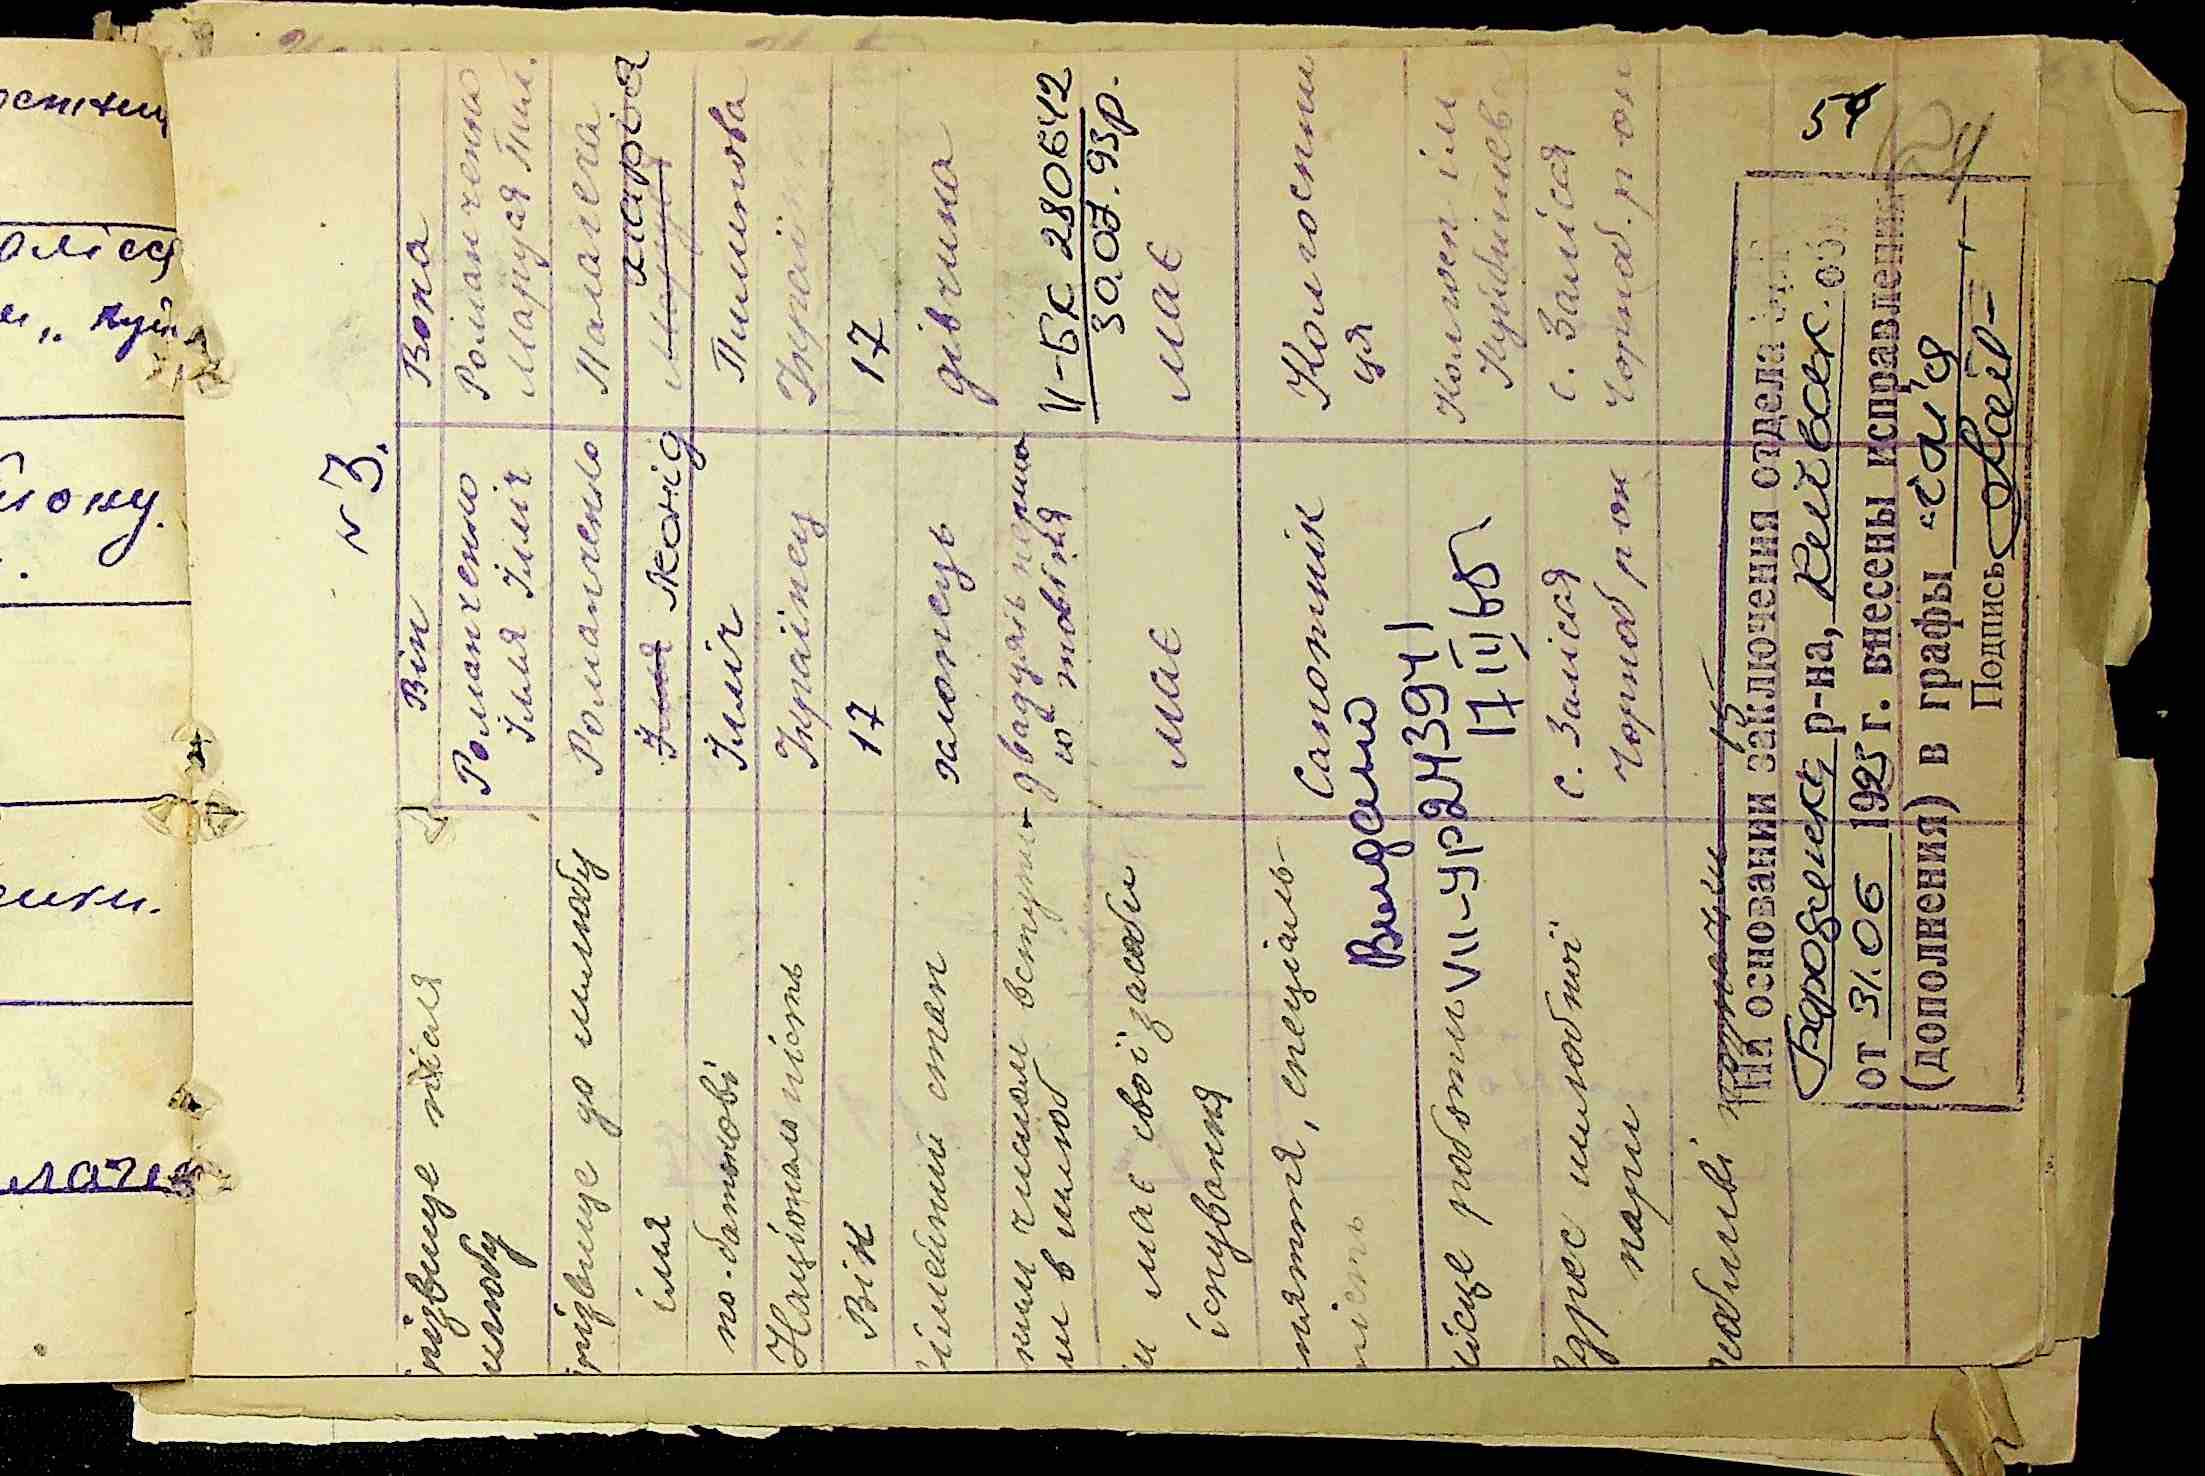 N 3.
Він Вона
різвище після шлюбу
Романченко Ілля Ілліч
Романченко Маруся Пил.
різвище до шлюбу Романченко Палагеча
імя Ілля Яковід Маруся Марія
по-батькові Ілліч Пилипова
Національність Українец Украї
Вік 17 17
імейний стан хлопець дівчина
яким числом вступили в шлюб двадцять першо го жовтня
V-БК 280642
30.07.93р.
и має свої засоби існування має має
няття, спеціальність Сапотнік Колгоспниця
Видано
VII-УР 243941
17 III 65
місце роботи Колгосп ім Куйбишев
дрес шлюбної пари с. Залісся Чорноб. р он с. Залісся Чорноб. р он
собливі
На основании заключения отдела
Бородянск р-на, Киевск. об
от 31.06 1995 г. внесены исправления
(дополнения) в графы "ім'я
Подпись
54
оліссяㅤ
лону.